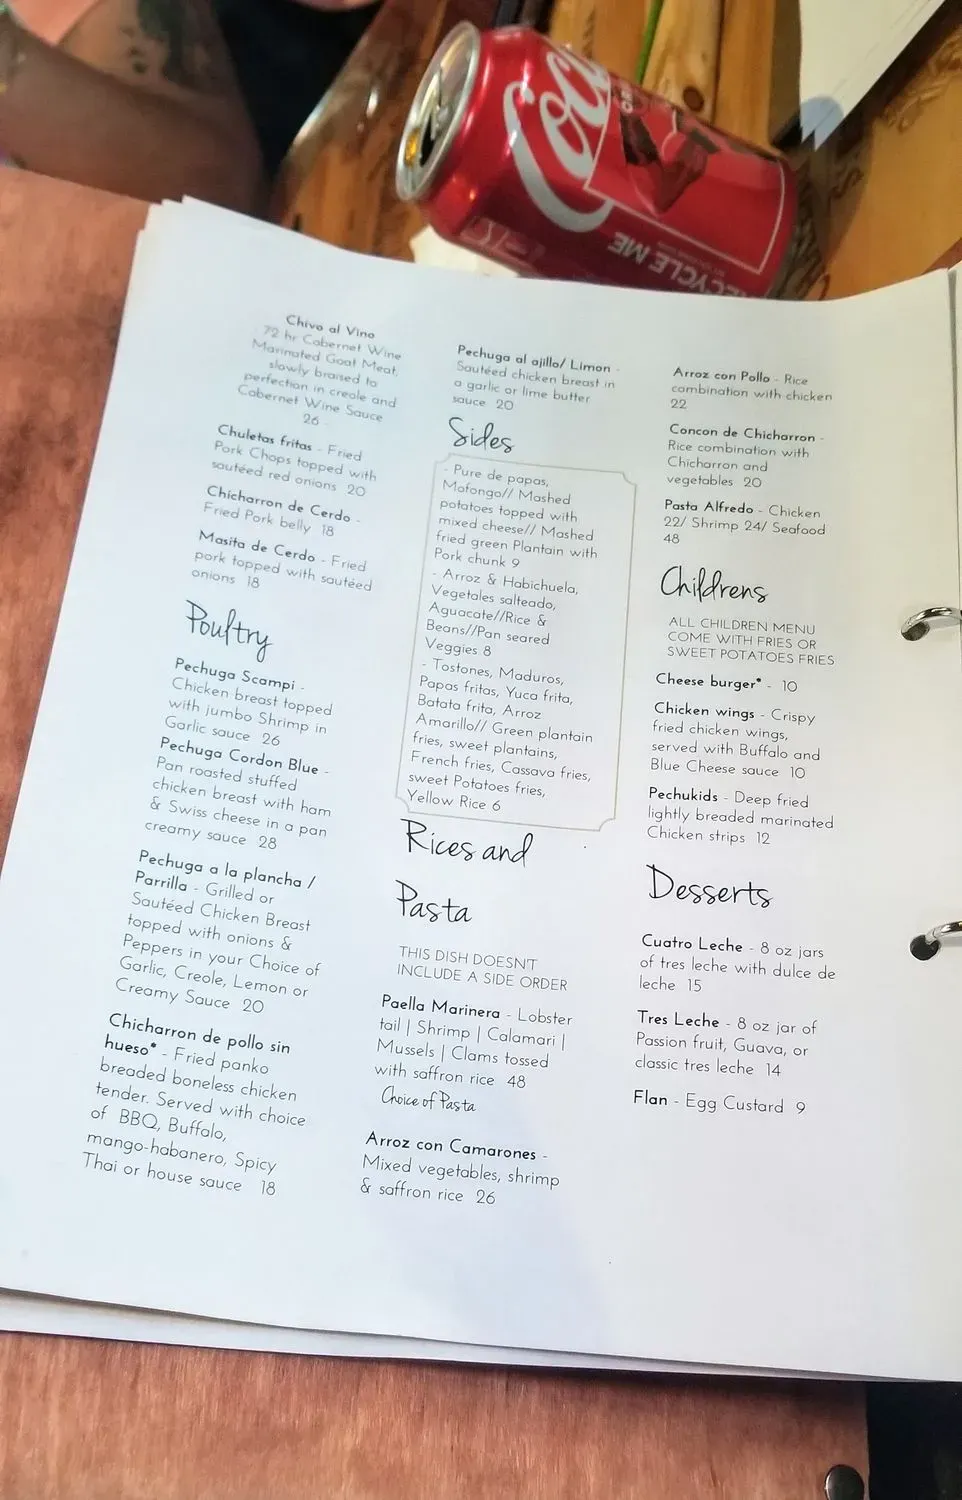 Coca
RECYCLE ME
Chivo al Vino
72 hr Cabernet Wine
Marinated Goat Meat,
slowly braised to
perfection in creole and
Cabernet Wine Sauce
26
Chuletas fritas - Fried
Pork Chops topped with
sautéed red onions 20
Chicharron de Cerdo -
Fried Pork belly 18
Masita de Cerdo - Fried
pork topped with sautéed
onions 18
Poultry
Pechuga Scampi -
Chicken breast topped
with jumbo Shrimp in
Garlic sauce 26
Pechuga Cordon Blue -
Pan roasted stuffed
chicken breast with ham
& Swiss cheese in a pan
creamy sauce 28
Pechuga a la plancha /
Parrilla - Grilled or
Sautéed Chicken Breast
topped with onions &
Peppers in your Choice of
Garlic, Creole, Lemon or
Creamy Sauce 20
Chicharron de pollo sin
hueso* - Fried panko
breaded boneless chicken
tender. Served with choice
of BBQ, Buffalo,
mango-habanero, Spicy
Thai or house sauce 18
Pechuga al ajillo/ Limon -
Sautéed chicken breast in
a garlic or lime butter
sauce 20
Sides
- Pure de papas,
Mofongo// Mashed
potatoes topped with
mixed cheese// Mashed
fried green Plantain with
Pork chunk 9
- Arroz & Habichuela,
Vegetales salteado,
Aguacate//Rice &
Beans//Pan seared
Veggies 8
- Tostones, Maduros,
Papas fritas, Yuca frita,
Batata frita, Arroz
Amarillo// Green plantain
fries, sweet plantains,
French fries, Cassava fries,
sweet Potatoes fries,
Yellow Rice 6
Rices and
Pasta
THIS DISH DOESN'T
INCLUDE A SIDE ORDER
Paella Marinera - Lobster
tail | Shrimp | Calamari |
Mussels | Clams tossed
with saffron rice 48
Choice of Pasta
Arroz con Camarones -
Mixed vegetables, shrimp
& saffron rice 26
Arroz con Pollo - Rice
combination with chicken
22
Concon de Chicharron -
Rice combination with
Chicharron and
vegetables 20
Pasta Alfredo - Chicken
22/ Shrimp 24/ Seafood
48
Childrens
ALL CHILDREN MENU
COME WITH FRIES OR
SWEET POTATOES FRIES
Cheese burger* - 10
Chicken wings - Crispy
fried chicken wings,
served with Buffalo and
Blue Cheese sauce 10
Pechukids - Deep fried
lightly breaded marinated
Chicken strips 12
Desserts
Cuatro Leche - 8 oz jars
of tres leche with dulce de
leche 15
Tres Leche - 8 oz jar of
Passion fruit, Guava, or
classic tres leche 14
Flan - Egg Custard 9